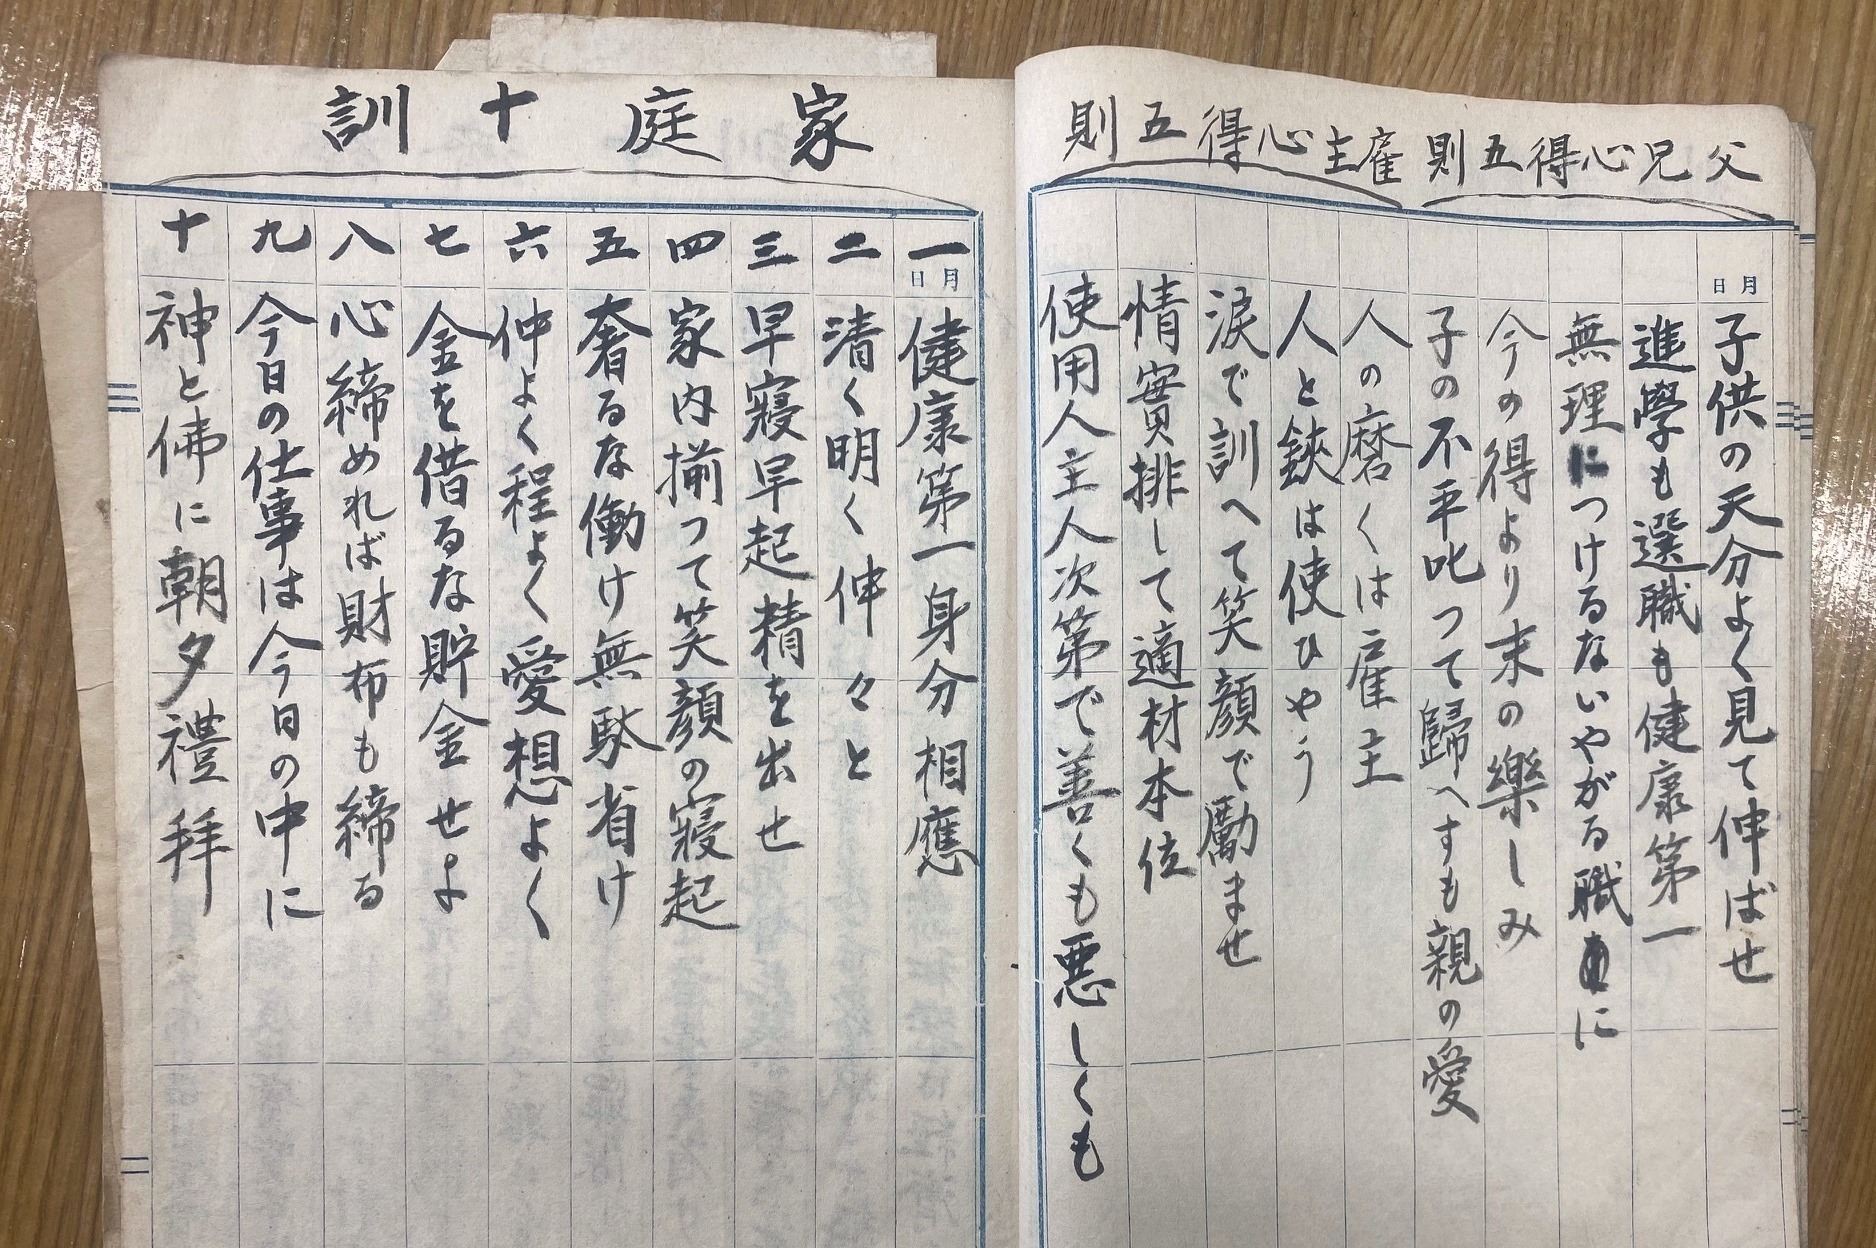 父兄心得五則
子供の天分よく見て伸ばせ
進學も選職も健康第一
無理につけるないやがる職に
今の得より末の樂しみ
子の不平叱つて歸へすも親の愛
雇主心得五則
人の磨くは雇主
人と鋏は使ひやう
涙で訓へて笑顔で勵ませ
情實排して適材本位
使用人主人次第で善くも悪しくも
家庭十訓
一 健康第一身分相應
二 清く明く伸々と
三 早寢早起精を出せ
四 家内揃つて笑顔の寢起
五 奢るな働け無駄省け
六 仲よく程よく愛想よく
七 金を借るな貯金せよ
八 心締めれば財布も締る
九 今日の仕事は今日の中に
十 神と佛に朝夕禮拜
月日
月日